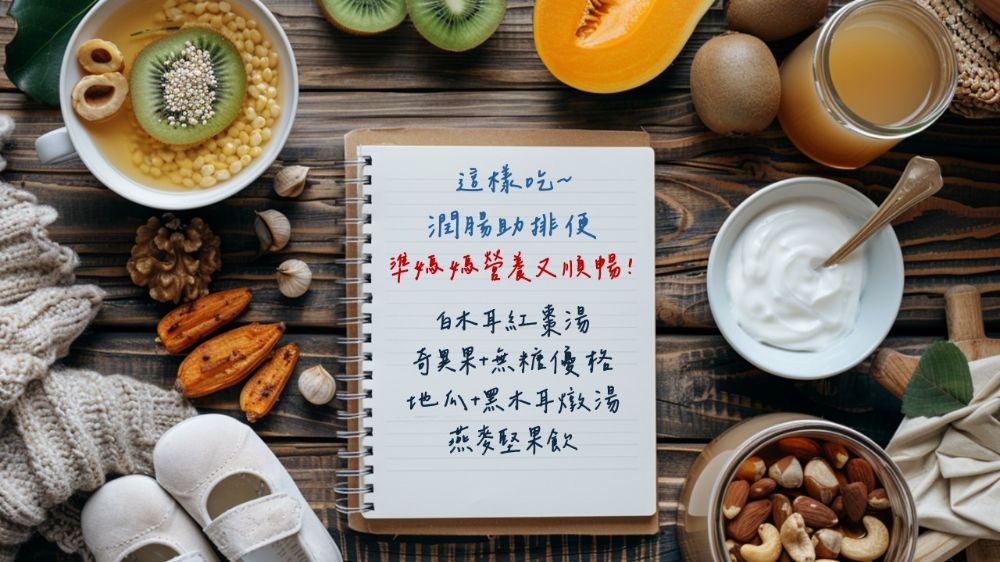 這樣吃~
潤腸助排便
準媽媽營養又順暢!
白木耳紅棗湯
奇異果+無糖優格
地瓜+黑木耳燉湯
燕麥堅果飲